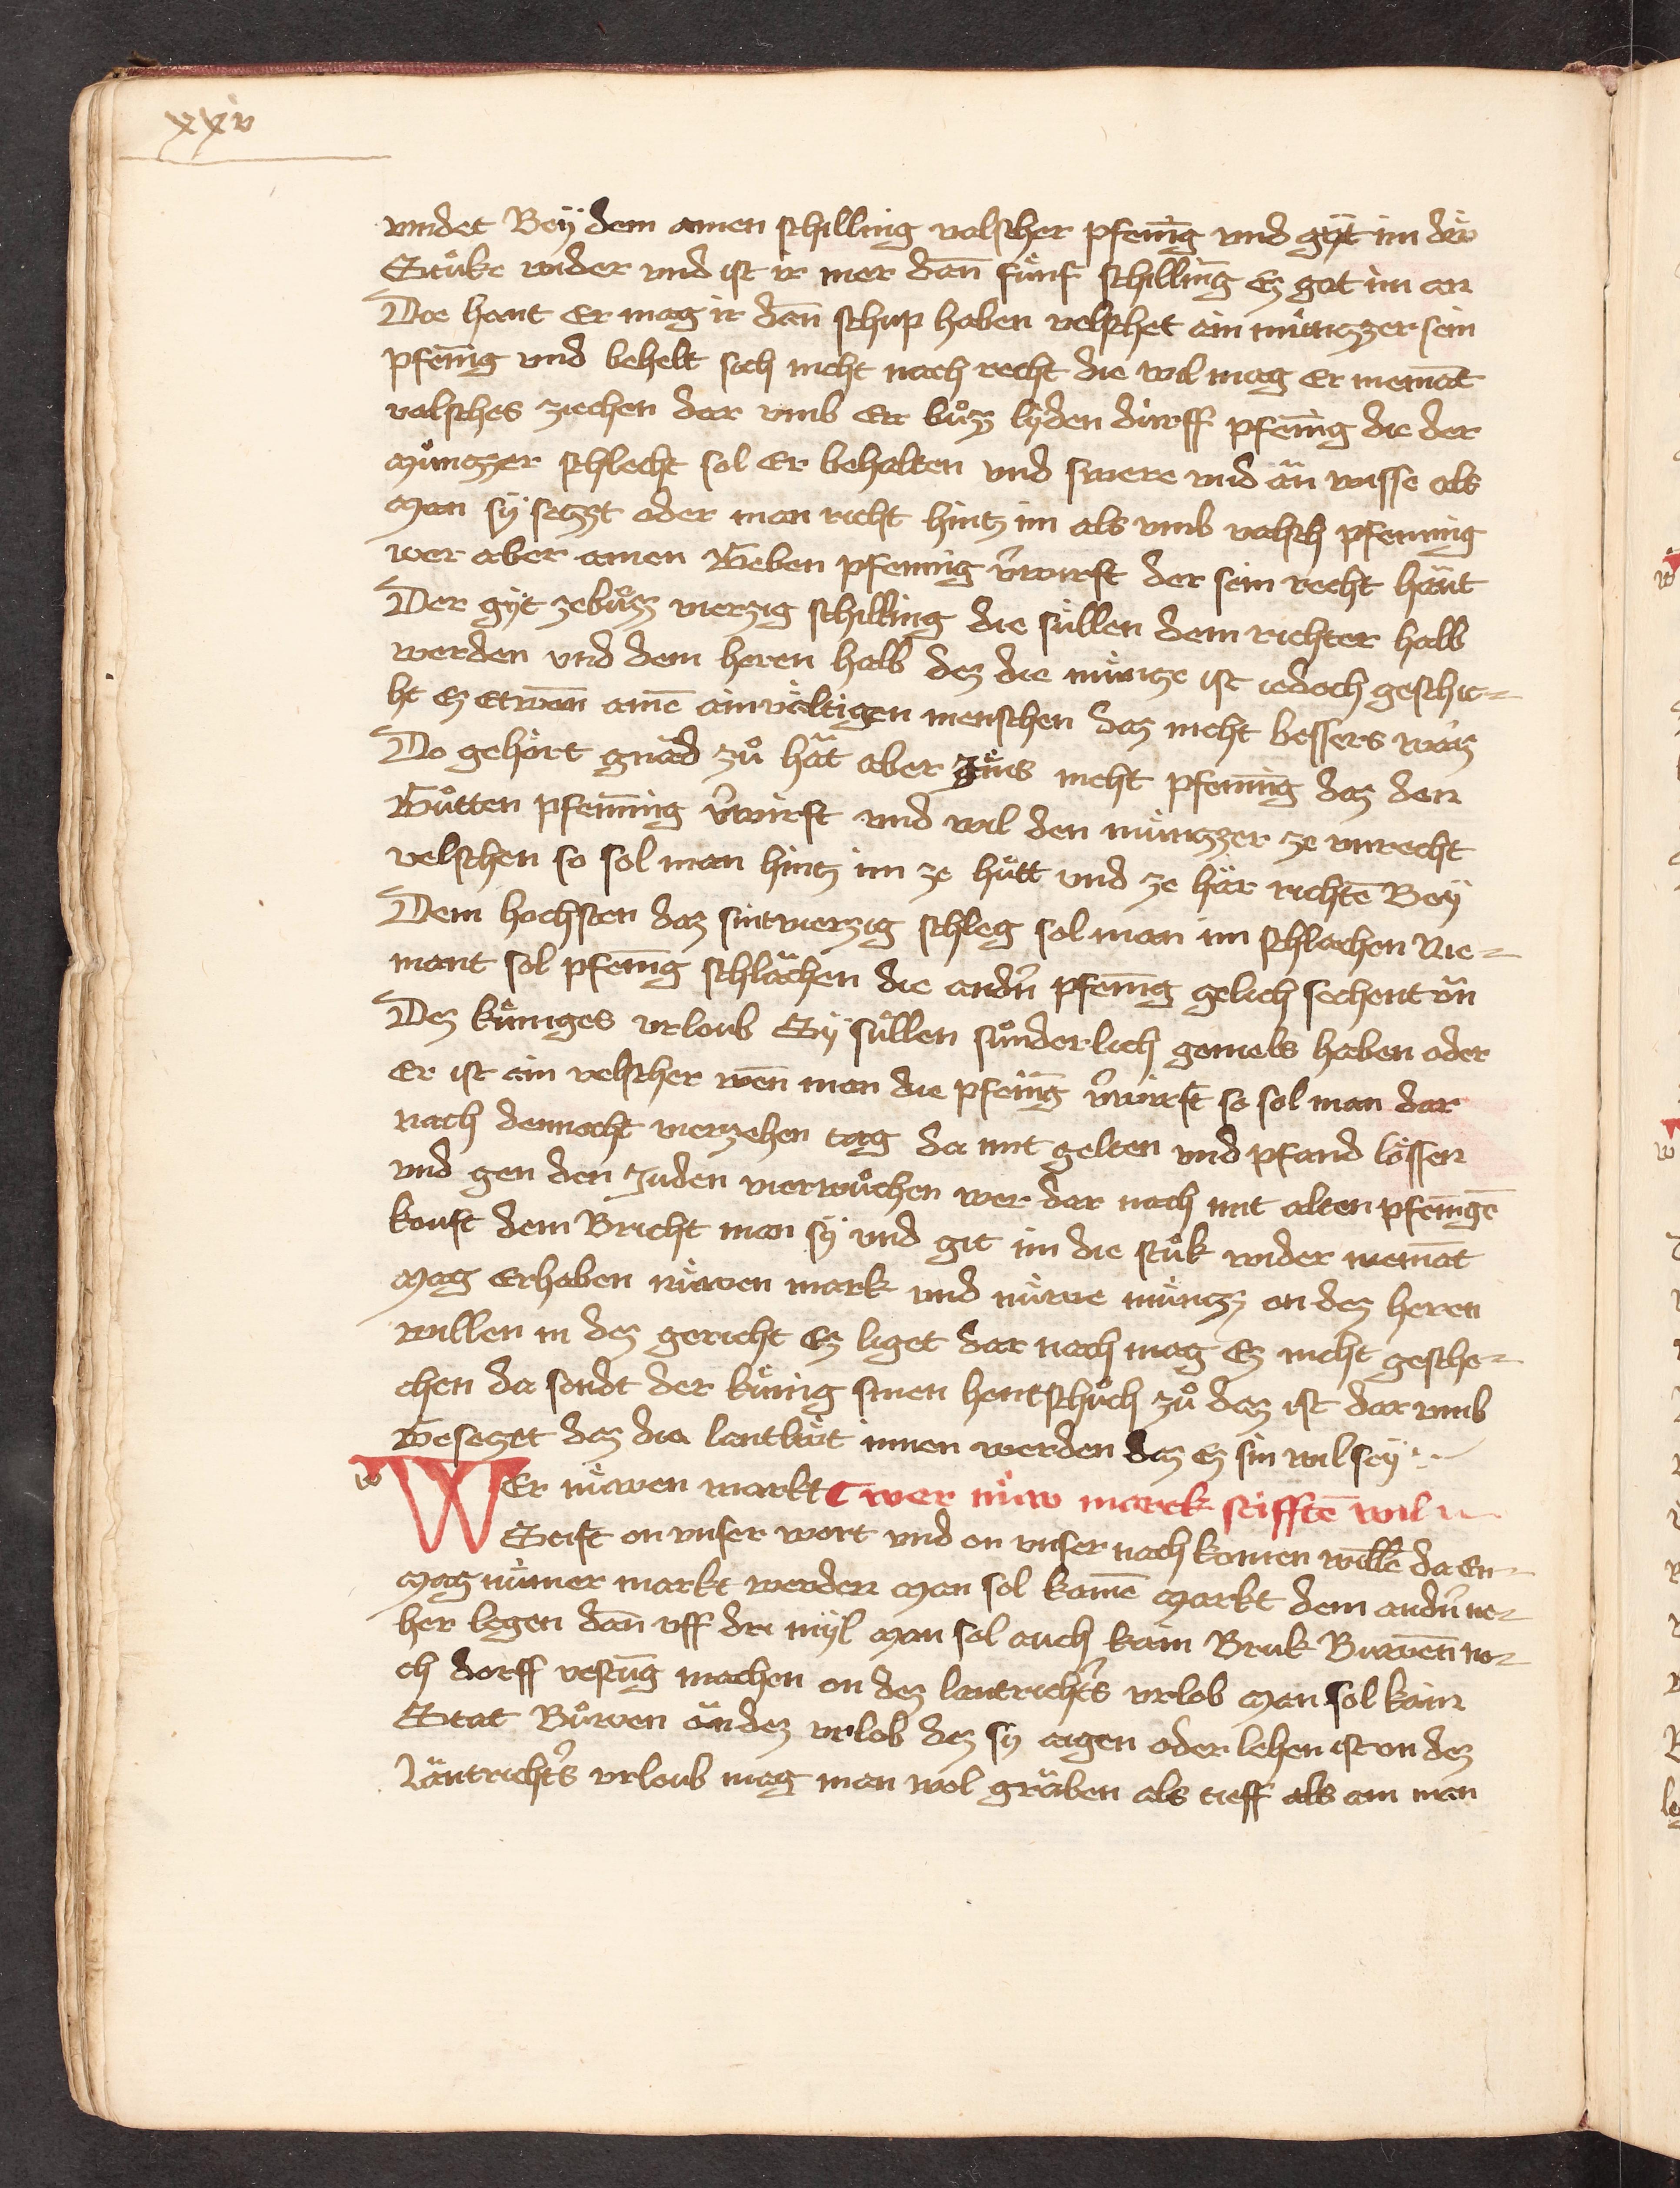 xxiv
vindet Beÿ dem ainen schilling valscher pfenīg vnd gÿt im dÿ
Stuͤke wider vnd ist ir mer dan̄ fuͤnf schilling Ez gat im an
Die hant Er mag ir dan̄ schup haben velschet ain muͤnczzer sein
pfenīg vnd behelt sich nicht nach recht die wil mag Er niemāt
valsches ziechen dar vmb Er buͦzz lÿden durff pfenīg die der
Muͤnczzer schlecht sol Er behalten vnd swere vnd aͤn wisse als
Man sÿ seczzt oder man richt hintz im als vmb valsch pfenning
wer aber ainen Geben pfenning v̄wirft der sein recht haͤut
Der gÿt zebuͦzz vierzig schilling die suͤllen dem richter halb
werden vnd dem heren halb dez die muͤncze ist iedoch geschic-
ht Ez etwan̄ aime ainvaͤltigen menschen daz nicht bessers waiz
Do gehoͤrt gnaͤd zuͦ haͤt aber Jeͤns nicht pfennīg daz den
Guͦtten pfennīg v̄wirft vnd wil den muͤnczzer ze vnrecht
velschen so sol man hintz im ze huͤtt vnd ze haͤr richtē Beÿ
Dem hochsten daz sint vierzig schleg sol man im schlachen Nie-
mant sol pfenīg schlaͤchen die andn̄ pfenīg gelich sechent aͤn
Dez kuͤniges vrloub Sÿ suͤllen suͦnderlich gemels haben oder
Er ist ain velscher wen̄ man die pfenīg v̄wirft so sol man dar
nach dennocht vierzehen tag da mit gelten vnd pfand loͤssen
vnd gen den Juden vier wuͦchen wer dar nach mit alten pfenīgē
kouft dem Bricht man sÿ vnd git im die stuͤk wider niemāt
Mag Erhaben nuͤwen mark vnd nuͤwe muͤnczz on dez heren
willen in dez gericht Ez liget dar nach mag Ez nicht gesche-
chen da sendt der kuͤnig sinen hentschuͦch zuͦ daz ist dar vmb
Gesezet daz die lantluͤt innen werden daz Ez sin wil seÿ
w
WEr nuͤwen markt wer nuͤw marck stifftē wil
Stift on vnser wort vnd on vnser nach komen willē da En-
Mag nuͤmer markt werden Man sol kainē Markt dem andn̄ ne-
her legen dan̄ vff dri mÿl Man sol auch kain Bruk Buwen̄ no-
ch dorff vestūg machen on dez lantrichtˢ vrlob Man sol kain
Stat Buͦwen aͤn dez vrlob dez sÿ aigen oder lehen ist on dez
Laͤntrichtˢ vrloub mag man wol graͤben als tieff als ain man